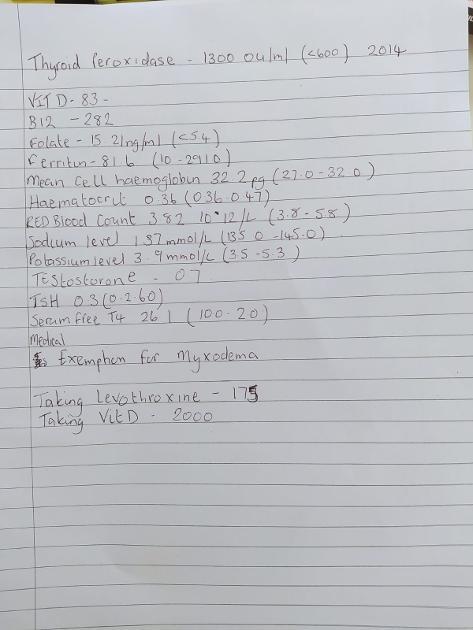 Thyroid Peroxidase - 1300 OU/ml (<600) 2014
VIT D- 83 -
B12 - 282
Folate - 15.2 lng/ml (<5.4)
Ferritin - 81.6 (10 - 291.0)
Mean Cell haemoglobin 32.2pg (27.0 - 32.0)
Haematocrit 0.36 (0.36 0.47)
RED Blood Count 3.82 10*12/L (3.8 - 5.8)
Sodium level 137 mmol/L (135.0 - 145.0)
Potassium level 3.9 mmol/L (3.5 - 5.3)
Testosterone - 0.7
TSH 0.3 (0.2.60)
Serum free T4 26.1 (10.0 - 20)
Medical
Exemption for Myxodema
Taking Levothroxine - 175
Taking Vit D - 2000